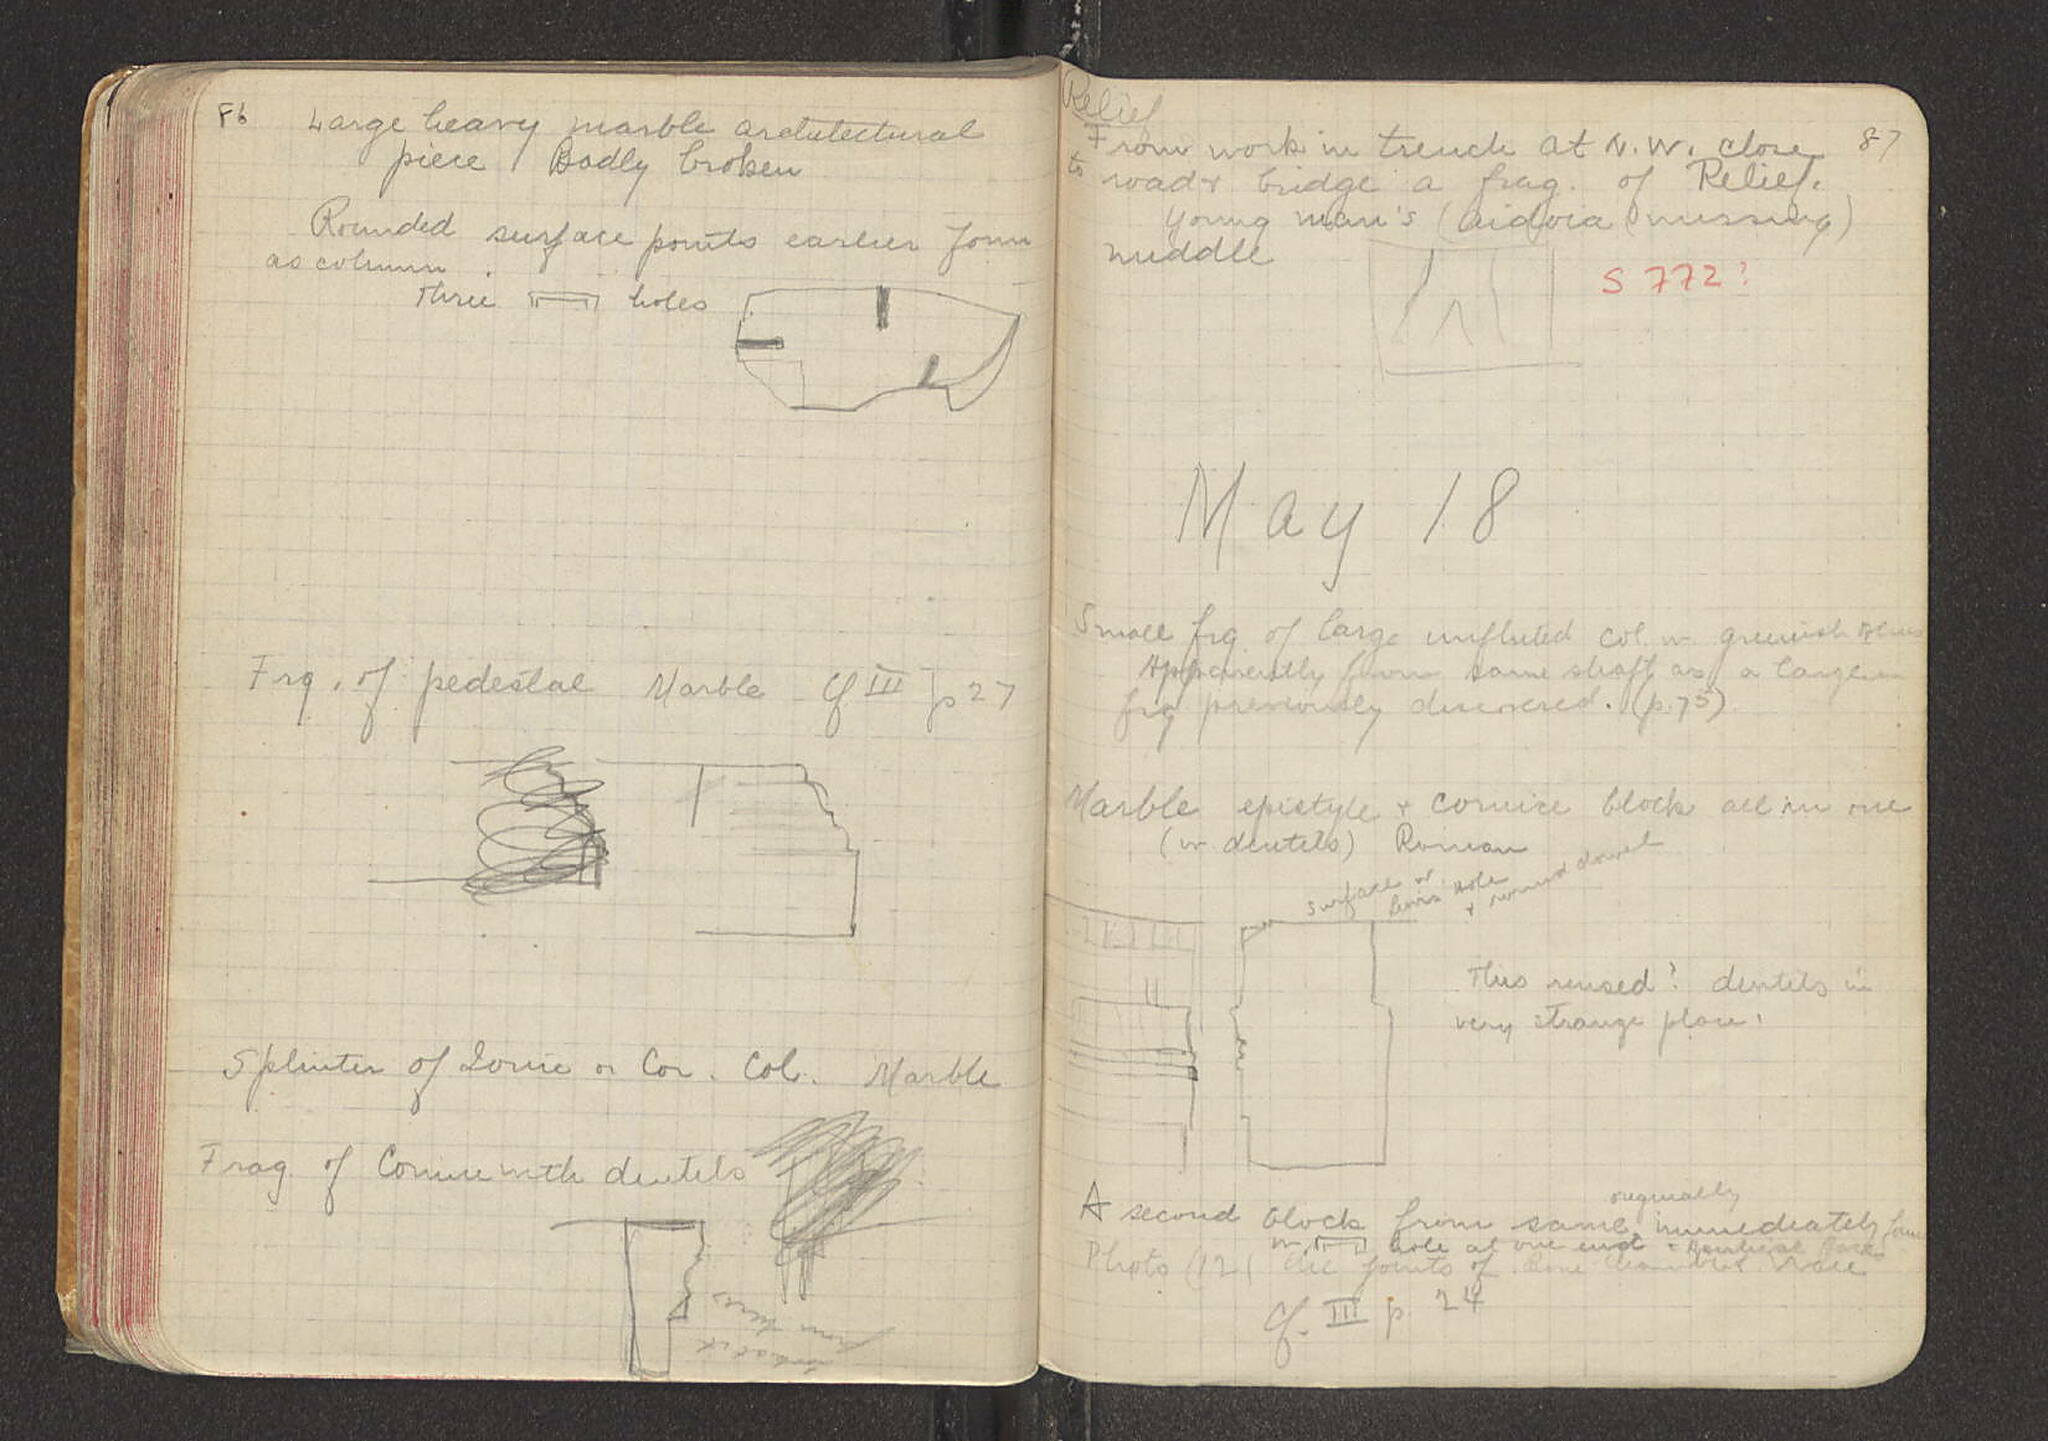 86
Large heavy marble architectural
piece Badly broken
Rounded surface points earlier form
as column.
three holes
Frg. of pedestal Marble Cf III p 27
Splinter of Ionic or Cor. Col. Marble
Frag. of Cornice with dentels
look at it
from here
Relief
87
From work in trench at N.W. close
to road & bridge a frag. of Relief.
Young man's (aidoia missing)
middle
S 772?
May 18
Small frg of large unfluted col in greenish
Apparently from same shaft as a larger
frg previously discovered. (p. 75)
Marble epistyle & cornice block all in one
(w dentels) Roman
surface w
lewis hole
& round dowel
This reused? dentels in
very strange place.
originally
A second block from same, immediately
w hole at one end
Photo (12) the joints of
Cf. III p. 24